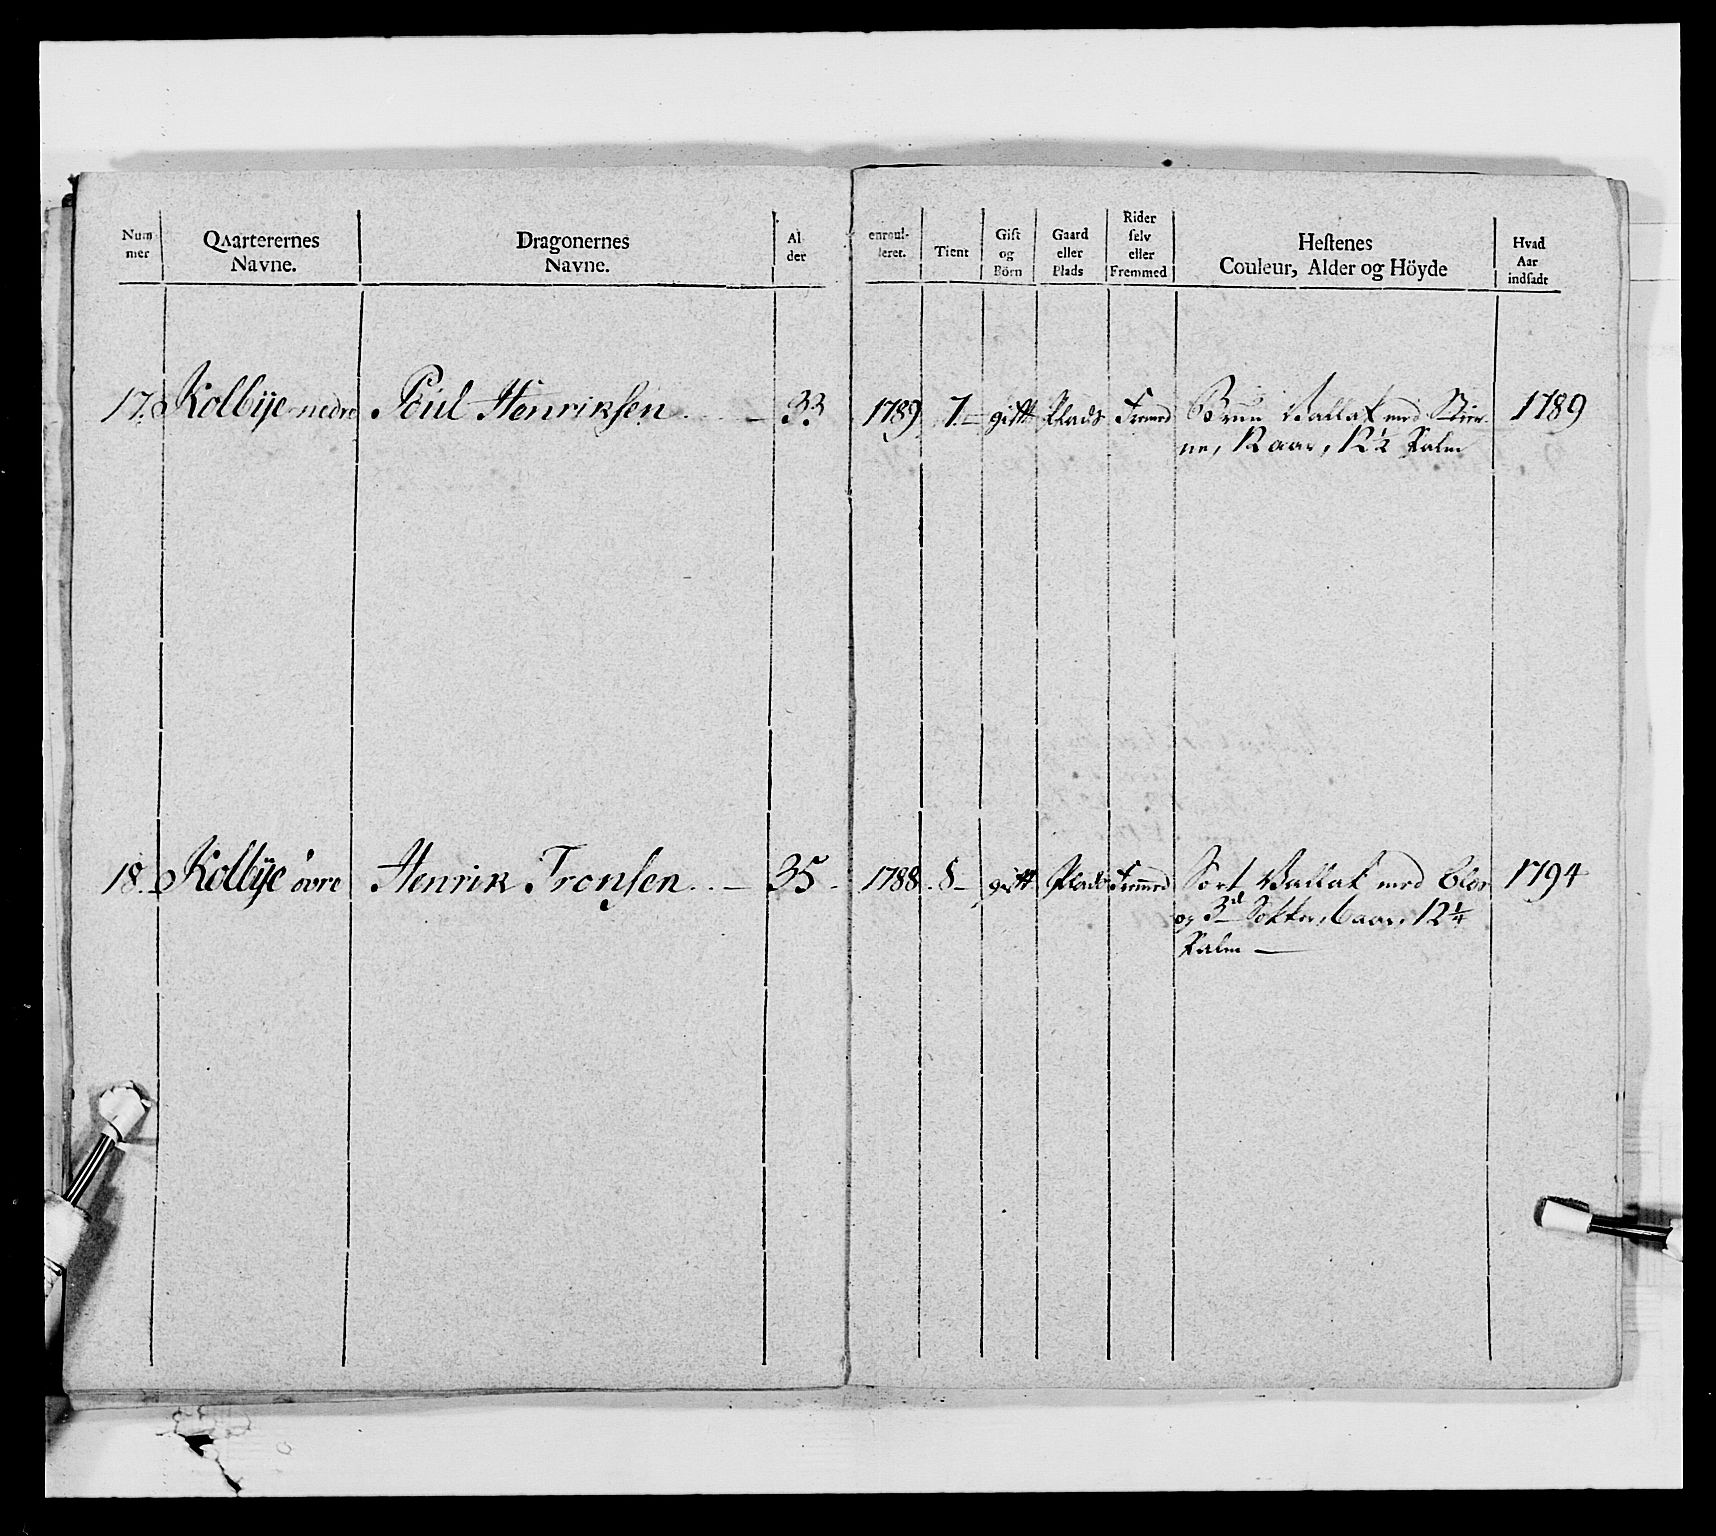 Num-
mer
Qvarterernes
Navne.
Dragonernes
Navne.
Al-
der
enroul-
leret.
Tient
Gift
og
Börn
Gaard
eller
Plads
Rider
selv
eller
Fremmed
Hestenes
Couleur, Alder og Höyde
Hvad
Aar
indsadt
17. Kolbÿe nedre Poul Henriksen 33 1789 7 gift Plads Fremed Bruun Vallak med Stier- 1789
ne, 12 aar, 12½ Palm
18. Kolbÿe övre Henrik Tronsen 35 1788 8 gift Plads Fremed Sort Vallak med blis 1794
og 3de Sokker, 6 aar, 12¼
Palm